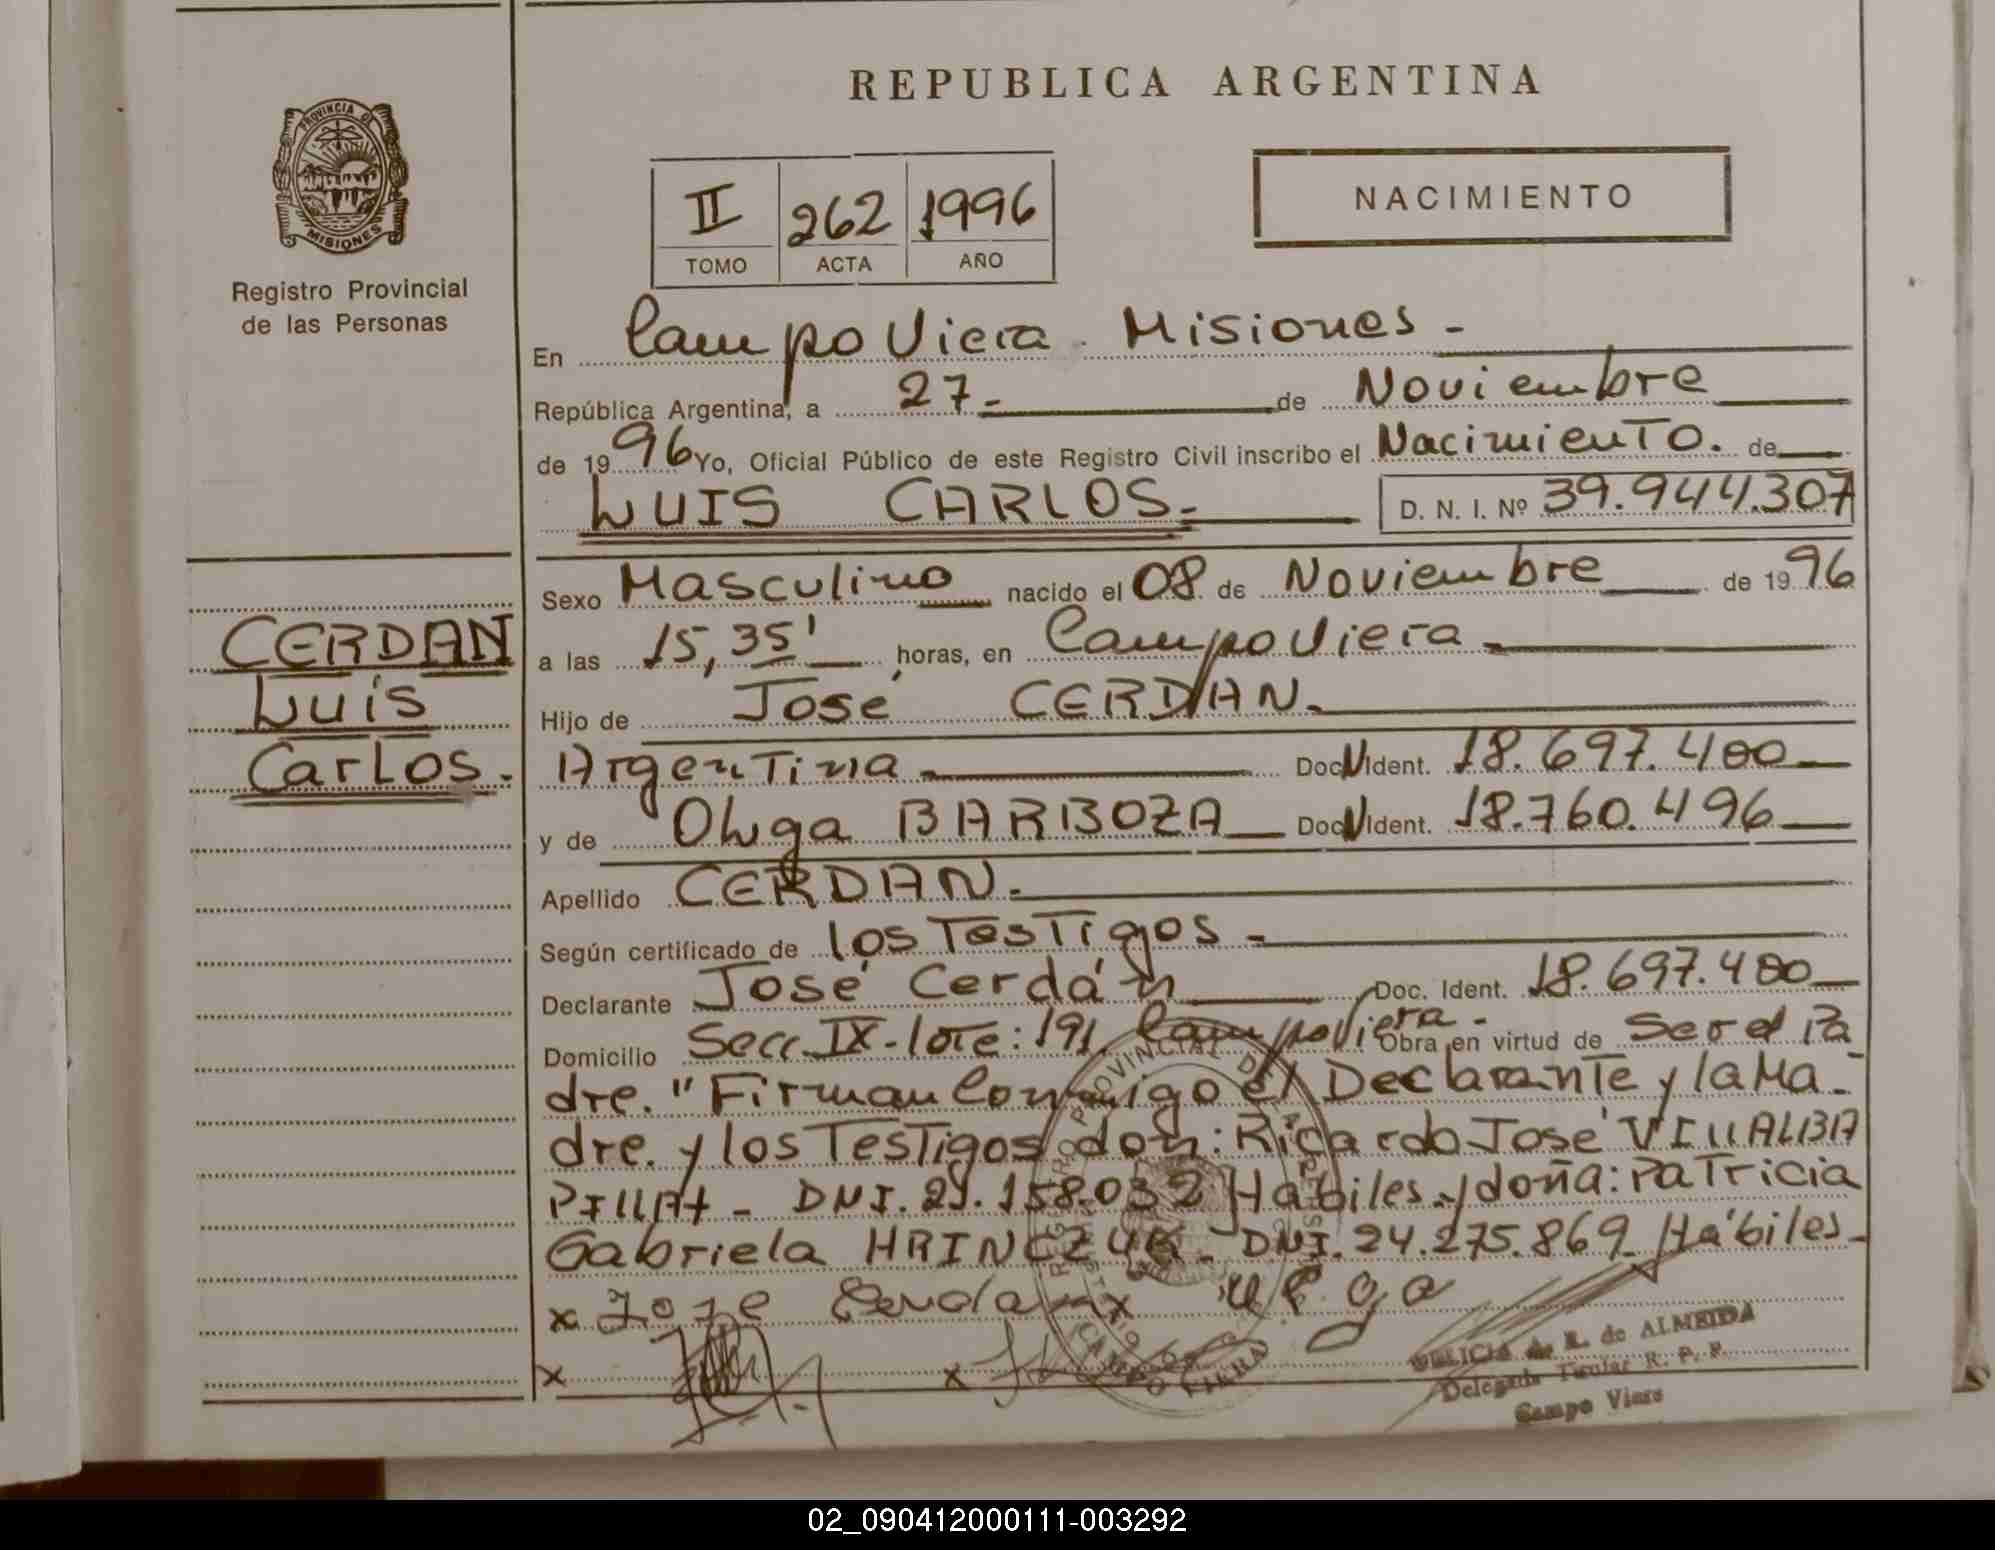 REPUBLICA ARGENTINA
PROVINCIA DE
MISIONES
Registro Provincial
de las Personas
NACIMIENTO
II 262 1996
TOMO ACTA AÑO
En Campo Viera Misiones -
República Argentina, a 27 - de Noviembre
de 1996 Yo, Oficial Público de este Registro Civil inscribo el Nacimiento. de
LUIS CARLOS. D. N. I. Nº 39.944.307
CERDAN
Luis
Carlos.
Sexo Masculino nacido el 08 de Noviembre de 1996
a las 15,35' horas, en Campo Viera -
Hijo de José CERDAN.
Argentina Doc N Ident. 18.697.400
y de Olga BARBOZA Doc N Ident. 18.760.496
Apellido CERDAN.
Según certificado de los Testigos -
Declarante José Cerdán Doc. Ident. 18.697.400
Domicilio Secc. IX - lote: 191. Campo Viera - Obra en virtud de Ser el Pa
dre. "Firman Conmigo el Declarante y la Ma-
dre. y los Testigos don: Ricardo José VILLALBA
PILLAt - DNI. 29.158.032 Hábiles y doña: Patricia
Gabriela HRINCZUK - DNI. 24.275.869 Hábiles -
x Jose Cerdan x Olga
x x
REGISTRO PROVINCIAL DE
CAMPO VIERA
DELICIA de R. de ALMEIDA
Delegada Titular R. P. P.
Campo Viera
02_090412000111-003292